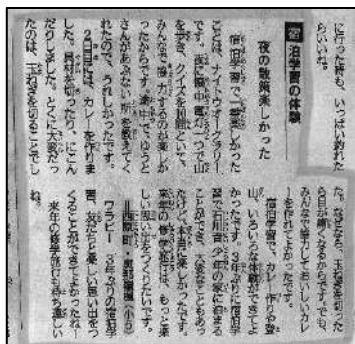 に行った時も、いっぱい釣れた
らいいね。
宿泊学習の体験
夜の散策楽しかった
宿泊学習で一番楽しかった
ことは、ナイトウオークラリー
です。夜に懐中電灯一つで山
を歩き、クイズを10問といて、
みんなで協力するのも楽しか
ったからです。途中でゆうと
さんがあぶない所を教えてく
れたので、うれしかったです。
2日目には、カレーを作りま
した。具材を切ったり、にこん
だりしました。とくに大変だっ
たのは、玉ねぎを切ることでし
た。なぜなら、玉ねぎを切った
ら目が痛くなるからです。でも、
みんなで協力しておいしいカレ
ーを作れてよかったです。
宿泊学習で、カレー作りや登
山、いろいろな体験ができてよ
かったです。3年ぶりに宿泊学
習で石川青少年の家に泊まる
ことができ、大変なこともあっ
たけど、本当に楽しかったです。
来年の修学旅行は、もっと楽
しい思い出をつくりたいです。
＝西原町・（小5）
ワラビー 3年ぶりの宿泊学
習、友だちと楽しい思い出をつ
くることができてよかったね！
来年の修学旅行も待ち遠しい
ね。